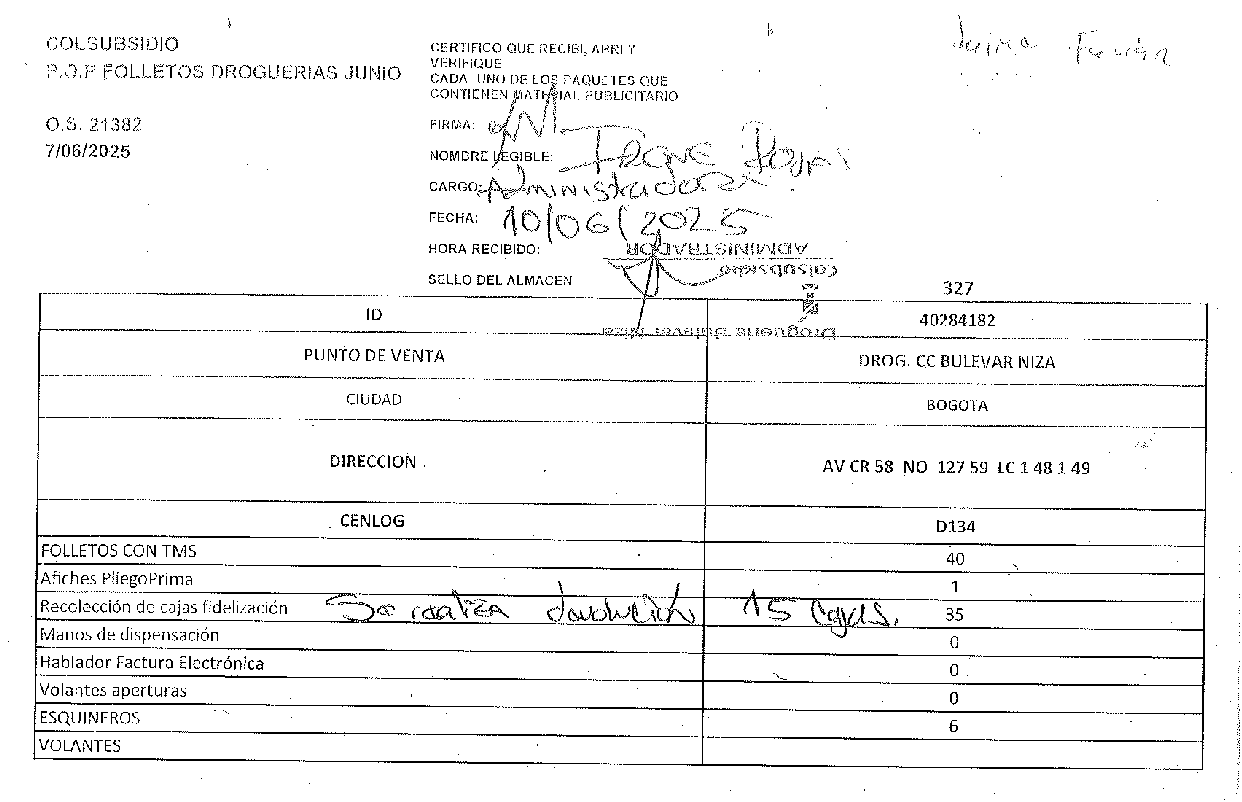 COLSUBSIDIO
P.O.P FOLLETOS DROGUERIAS JUNIO
O.S. 21382
7/06/2025
CERTIFICO QUE RECIBI, ABRI Y
VERIFIQUE
CADA UNO DE LOS PAQUETES QUE
CONTIENEN MATERIAL PUBLICITARIO
FIRMA:
NOMBRE LEGIBLE:
CARGO: Administradora
FECHA: 10/06/2025
HORA RECIBIDO:
ADMINISTRADOR
Colsubsidio
SELLO DEL ALMACEN
327
ID 40284182
PUNTO DE VENTA DROG. CC BULEVAR NIZA
CIUDAD BOGOTA
DIRECCION AV CR 58 NO 127 59 LC 1 48 1 49
CENLOG D134
FOLLETOS CON TMS 40
Afiches PliegoPrima 1
Recolección de cajas fidelización Se realiza devolución 15 Cajas. 35
Manos de dispensación 0
Hablador Factura Electrónica 0
Volantes aperturas 0
ESQUINEROS 6
VOLANTES